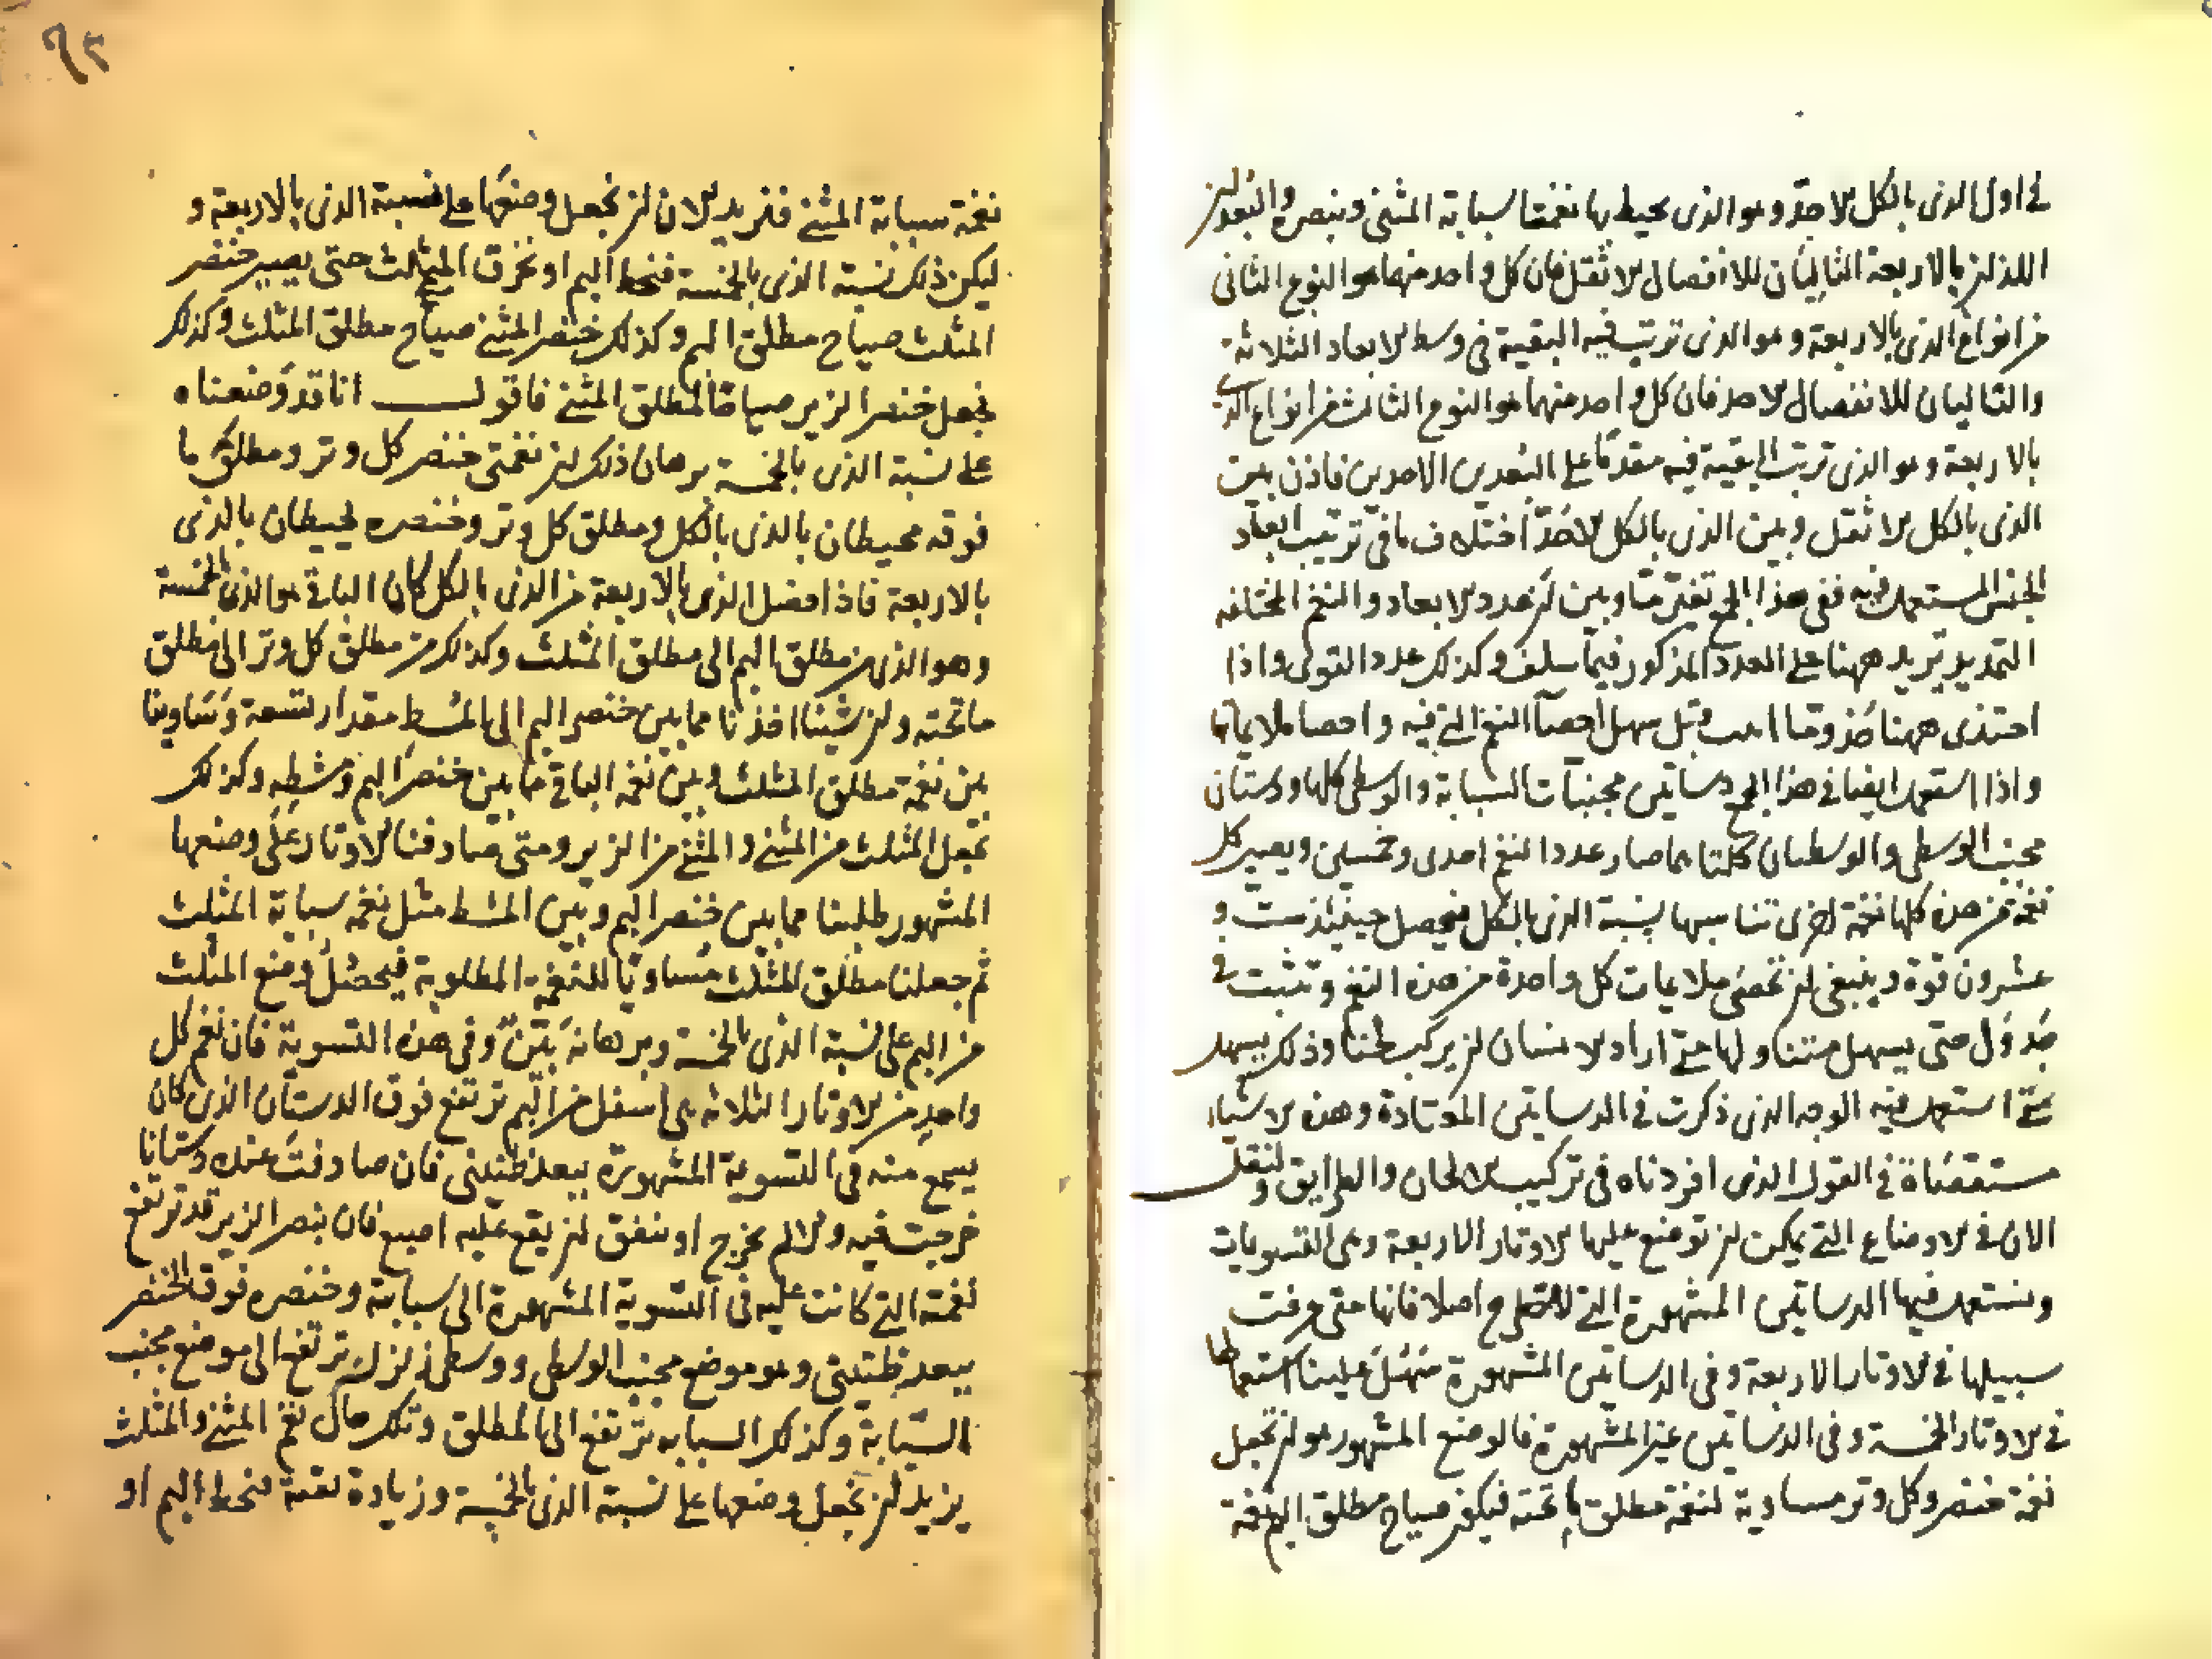 في اول الذى بالكل الاحد وهو الذى يحيط بها نغمتا سبابة المثنى وبنصره والبعدان
اللذان بالاربعة التاليان للانفصال الاثقل فان كل واحد منهما هو النوع الثانى
من انواع الذى بالاربعة وهو الذى ترتب فيه البقية في وسط الابعاد الثلاثة
والتاليان للانفصال الاحد فان كل واحد منهما هو النوع الثالث من انواع الذى
بالاربعة وهو الذى ترتب البقية فيه مقدما على البعدين الاحدين فاذن بين
الذى بالكل الاثقل وبين الذى بالكل الاحد اختلاف ما في ترتيب ابعاد
الجنس المستعمل فيه ففى هذا الجمع تغير ما وبين ان عدد الابعاد والنغم المختلفة
التمديد تزيد ههنا على العدد المذكور فيما سلف وكذلك عدد القوى واذا
احتذى ههنا حذو ما قبل سهل احصا النغم التي فيه واحصا ملايماتها
واذا استعمل ايضا في هذا الجمع دساتين مجنبات السبابة والوسطى كلها ودستان
مجنب الوسطى والوسطيان كلتاهما صار عدد النغم احدى وخمسين ويصير كل
نغمة من هذه كلها نغمة اخرى تناسبها بنسبة الذى بالكل فيحصل حينئذ ست و
عشرون قوة وينبغى ان تحصى ملايمات كل واحدة من هذه النغم وتثبت في
جدول حتى يسهل متناولها متى اراد الانسان ان يركب لحنا وذلك يسهل
متى استعمل فيه الوجه الذى ذكرت في الدساتين المعتادة وهذه الاشياء
مستقصاة في القول الذى افردناه في تركيب الالحان والطرايق ولنقل
الان في الاوضاع التي يمكن ان توضع عليها الاوتار الاربعة وهى التسويات
ونستعمل فيها الدساتين المشهورة التي لا تطرح اصلا فانها متى عرفت
سبيلها في الاوتار الاربعة وفى الدساتين المشهورة سهل علينا استعمالها
في الاوتار الخمسة وفى الدساتين غير المشهورة فالوضع المشهور هو ان تجعل
نغمة خنصر كل وتر مساوية لنغمة مطلق ما تحته فيكون صياح مطلق البم نغمة
نغمة سبابة المثنى فنريد الان ان نجعل وضعها على نسبة الذى بالاربعة و
ليكن ذلك نسبة الذى بالخمسة فنحط البم او نحزق المثلث حتى يصير خنصر
المثلث صياح مطلق البم وكذلك خنصر المثنى صياح مطلق المثلث وكذلك
نجعل خنصر الزير صياحا لمطلق المثنى فاقول انا قد وضعناه
على نسبة الذى بالخمسة برهان ذلك ان نغمتى خنصر كل وتر ومطلق ما
فوقه محيطان بالذى بالكل ومطلق كل وتر وخنصره يحيطان بالذى
بالاربعة فاذا فضل الذى بالاربعة من الذى بالكل كان الباقى هو الذى بالخمسة
وهو الذى من مطلق البم الى مطلق المثلث وكذلك من مطلق كل وتر الى مطلق
ما تحته وان شينا اخذنا مما بين خنصر البم الى المشط مقدار تسعه وساوينا
بين نغمة مطلق المثلث وبين نغمة الباقى ما بين خنصر البم ومشطه وكذلك
نجعل المثلث من المثنى والمثنى من الزير ومتى صادفنا الاوتار على وضعها
المشهور طلبنا مما بين خنصر البم وبين المشط مثل نغمة سبابة المثلث
ثم جعلنا مطلق المثلث مساويا للنغمة المطلوبة فيحصل وضع المثلث
من البم على نسبة الذى بالخمسة وبرهانه بين وفى هذه التسوية فان نغم كل
واحد من الاوتار الثلاثه التى اسفل من البم ترتفع فوق الدستان الذى كان
يسمع منه في التسوية المشهورة ببعد طنينى فان صادفت عنده دستانا
خرجت فيه والا لم يخرج او يتفق ان يقع عليه اصبع فان بنصر الزير قد ترتفع
نغمته التي كانت عليه فى التسوية المشهورة الى سبابته وخنصره فوق الخنصر
ببعد طنينى وهو موضع مجنب الوسطى ووسطى زلزل ترتفع الى موضع مجنب
السبابة وكذلك السبابه ترتفع الى المطلق وتلك حال نغم المثنى والمثلث
نريد ان نجعل وضعها على نسبة الذى بالخمسة وزيادة بقية فنحط البم او